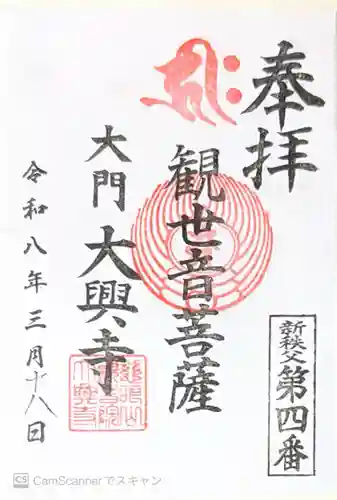 奉拝
新秩父第四番
観世音菩薩
大門
大興寺
令和八年三月十八日
CS CamScannerでスキャン